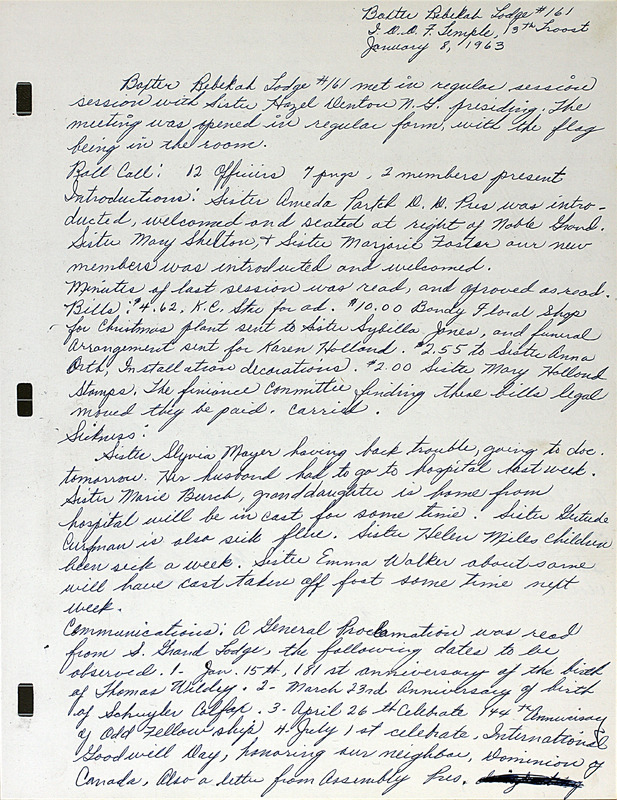 Baxter Rebekah Lodge #161
I.O.O.F. Temple, 13th Troost
January 8, 1963
Baxter Rebekah Lodge #161 met in regular session
session with Sister Hazel Denton N.G. presiding. The
meeting was opened in regular form, with the flag
being in the room.
Roll Call: 12 Officiers 7 pngs, 2 members present
Introductions: Sister Ameda Partch D. D. Pres was intro-
ducted, welcomed and seated at right of Noble Grand.
Sister Mary Shelton & Sister Marjorie Foster our new
members was introducted and welcomed.
Minutes of last session was read, and aproved as read.
Bills: $4.62, K.C. Star for ad. $10.00 Bondy Floral Shop
for Christmas plant sent to Sister Sybilla Jones, and funeral
Arrangement sent for Karen Holland. $2.55 to Sister Anna
Orth, Installation decorations. $2.00 Sister Mary Holland
Stamps. The finiance Committee finding these bills legal
moved they be paid. carried.
Sickness:
Sister Slyvia Mayer having back trouble, going to doc.
tomorrow. Her husband had to go to hospital last week.
Sister Marie Burch, granddaughter is home from
hospital will be in cast for some time. Sister Gertrude
Curfman is also sick flue. Sister Helen Miles children
been sick a week. Sister Emma Walker about same
will have cast taken off foot some time next
week.
Communications: A General Proclamation was read
from S. Grand Lodge, the following dates to be
observed. 1- Jan. 15th, 181st anniversary of the birth
of Thomas Wildey. 2- March 23rd Anniversary of birth
of Schuyler Colfax. 3- April 26th Celebrate 144th Anniversary
of Odd Fellowship, 4- July 1st celebrate, International
Goodwill Day, honoring our neighbor, Dominion of
Canada, Also a letter from Assembly Pres.